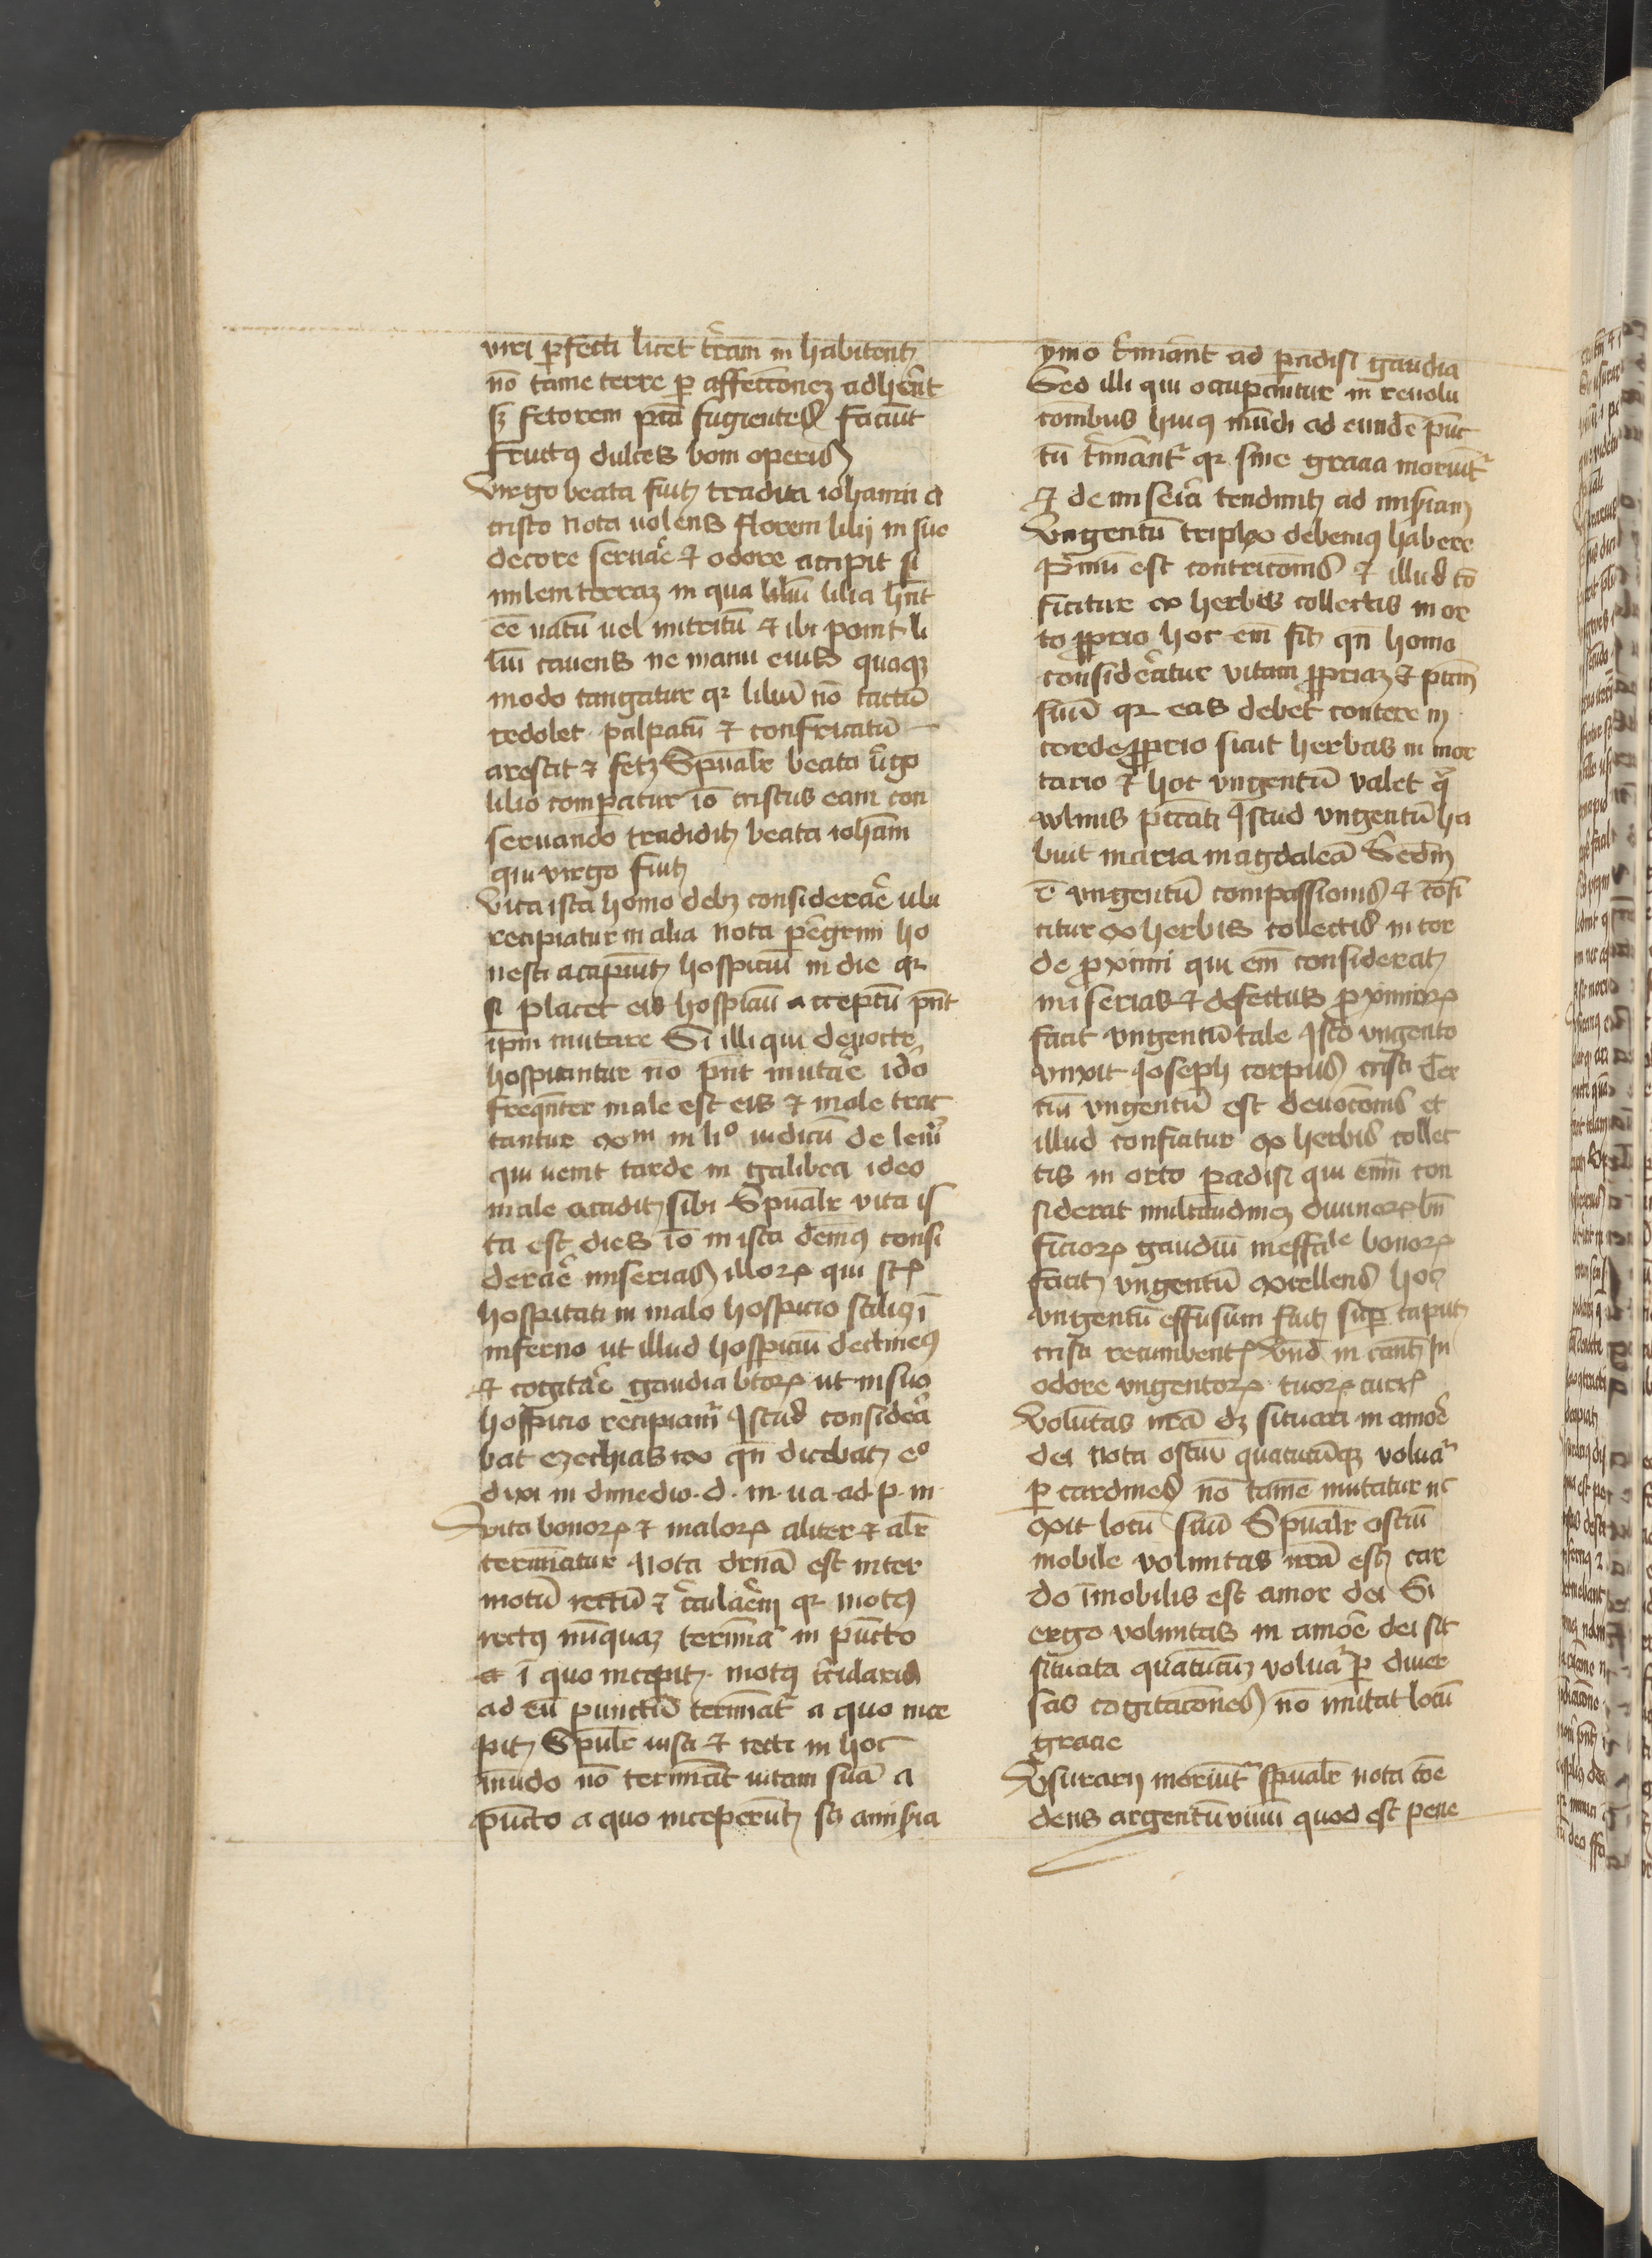 viri ꝑfecti licet t̄ram in habitent
nō tamē terre ꝑ affectionez adherēt
sꝫ fetorem pctī fugientes faciūt
fructꝰ dulces boni operis
Virgo beata fuit tradita iohanni a
cristo Nota uolens florem lilij in suo
decore seruare ⁊ odore accipit si
milem terraꝫ in qua liliū lilia hn̄t
eē natū uel nutritū ⁊ ibi ponit li
liū cauens ne manu eius quoqꝫ
modo tangatur qꝛ liliū nō tactū
redolet palpatū ⁊ confricatū
arescit ⁊ fetꝫ Spūalr beata v̄go
lilio comparatur iō cristus eam con
seruando tradidit beato iohāni
qui virgo fuit
Vita ista homo debꝫ considerare ubi
recipiatur in alia Nota peregrini ho
nesti accipiūt hospiciū in die qꝛ
si placet eis hospiciū acceptū pn̄t
ip̄m mutare Si illi qui de nocte
hospitantur nō pn̄t mutare idō
freqn̄ter male est eis ⁊ male trac
tantur exm in liº iudicū de leui
qui uenit tarde in galibea ideo
male accidit sibi Spūalr vita is
ta est dies iō in ista demꝰ consi
derare miserias illoꝝ qui st̄
hospitati in malo hospicio scilicꝫ ī
inferno ut illud hospiciū declinemꝰ
⁊ cogitare gaudia btōꝝ ut in suo
hospicio recipiamꝰ Istud considera
bat ezechias rex qn̄ dicebat eº
dixi in dimedio · d · m · ua · ad · p · in
Vita bonoꝝ ⁊ maloꝝ aliter ⁊ alr̄
terminatur Nota drn̄a est inter
motū rectū ⁊ circularem qꝛ motꝰ
rectꝰ nunquaꝫ terminat in pūcto
ī quo incepit · motꝰ circularis
ad eū punctū terminat a quo ince
pit Spūlr iusti ⁊ recti in hoc
mūdo nō termināt uitam suā a
pūcto a quo inceperūt sꝫ a miseria
ymo t̄minant ad ꝑadisi gaudia
Sed illi qui occupantur in reuolu
cionibus huiꝰ mūdi ad eundē pūc
tū t̄minant qꝛ sine gracia moriūt
⁊ de miseria tendunt ad miseriam
Vngentū triplex debemꝰ habere
Primū est contricionis ⁊ illud cō
ficitur ex herbis collectis in or
to ꝓprio hoc em̄ fit qn̄ homo
consideratur vitam ꝓpriaꝫ ⁊ pctm̄
suū qꝛ eas debet conterere in
corde ꝓprio sicut herbas in mor
tario ⁊ hoc vngentū valet 
wlnus peccati Istud vngentū ha
buit maria magdalena Secdm̄
ē vngentū compassionis ⁊ cōfi
citur ex herbis collectis in cor
de ꝓximi qui em̄ considerat
miserias ⁊ defectus ꝓximoꝝ
facit vngentū tale Isto vngento
vnxit Joseph corpus cristi Ter
tiū vngentū est deuocionis et
illud conficitur ex herbis collec
tis in orto ꝑadisi qui enim con
siderat multitudinez diuinoꝝ bn̄
ficioꝝ gaudiū ineffale bonoꝝ
facit vngentū excellens hoc
vngentū effusum fuit suꝑ caput
cristi recumbentꝭ Vnd̄ in cant̄ In
odore vngentoꝝ tuoꝝ curr
Voluntas nr̄a dꝫ situari in amore
dei Nota ostiū quatūcūqꝫ voluat
ꝑ cardines nō tamē mutatur nc
exit locū suū Spūalr ostiū
mobile voluntas nr̄a est car
do īmobilis est amor dei Si
ergo voluntas in amore dei sit
situata quatūcūqꝫ voluat ꝑ diuer
sas cogitaciones nō mutat locū
gracie
Vsurarij moriūt spūalr nota cōe
dens argentū uiuū quod est pene